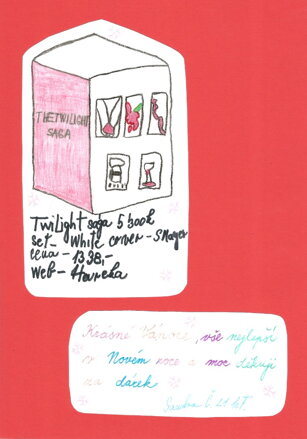 THE TWILIGHT
SAGA
Twilight saga 5 book
set - White cover - S Mayer
cena - 1338,-
Web - Heureka
Krásné Vánoce, vše nejlepší
v Novém roce a moc děkuji
za dárek